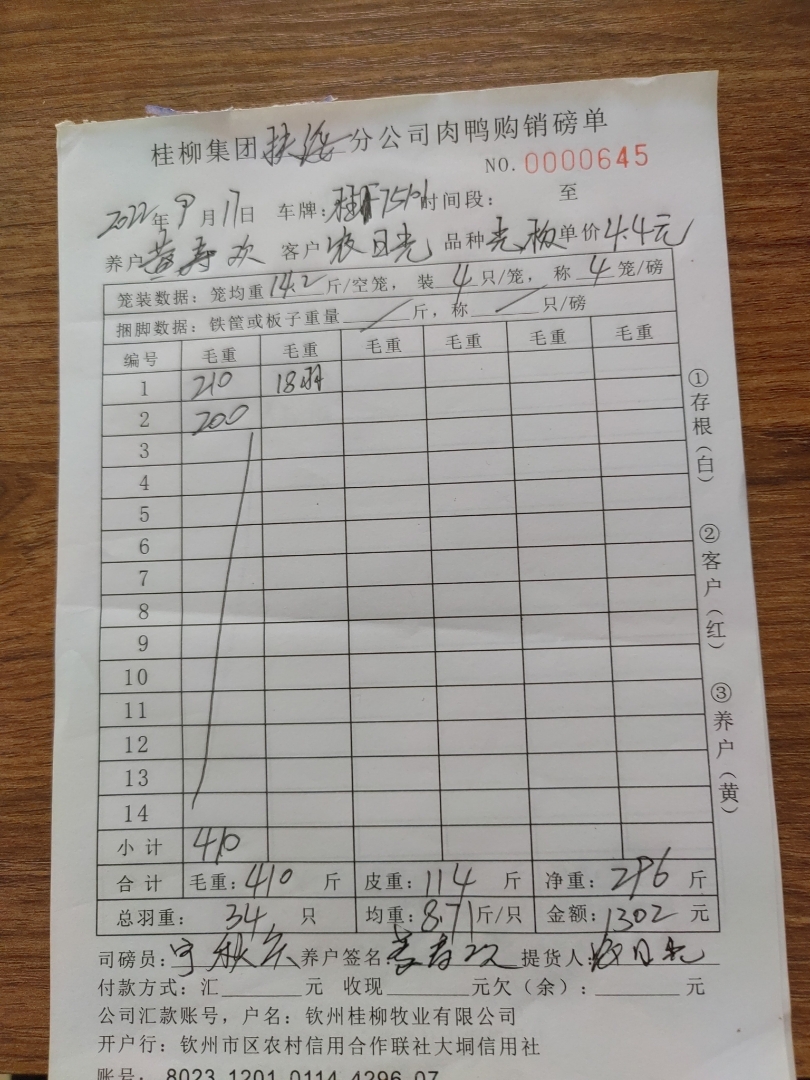 桂柳集团扶绥分公司肉鸭购销磅单
NO. 0000645
2022年9月17日 车牌: 时间段: 至
养户黄寿欢 客户农日光 品种 单价4.4元
笼装数据: 笼均重14.2斤/空笼, 装4只/笼, 称4笼/磅
捆脚数据: 铁筐或板子重量/斤, 称/只/磅
编号 毛重 毛重 毛重 毛重 毛重 毛重
1 210 18羽
2 200
3
4
5
6
7
8
9
10
11
12
13
14
小计 410
合计 毛重: 410 斤 皮重: 114 斤 净重: 296 斤
总羽重: 34 只 均重: 8.71斤/只 金额: 1302 元
司磅员: 养户签名: 黄寿欢 提货人: 农日光
付款方式: 汇 元 收现 元欠(余): 元
公司汇款账号, 户名: 钦州桂柳牧业有限公司
开户行: 钦州市区农村信用合作联社大垌信用社
账号: 8023 1201 0114 4296 07
①存根(白)
②客户(红)
③养户(黄)